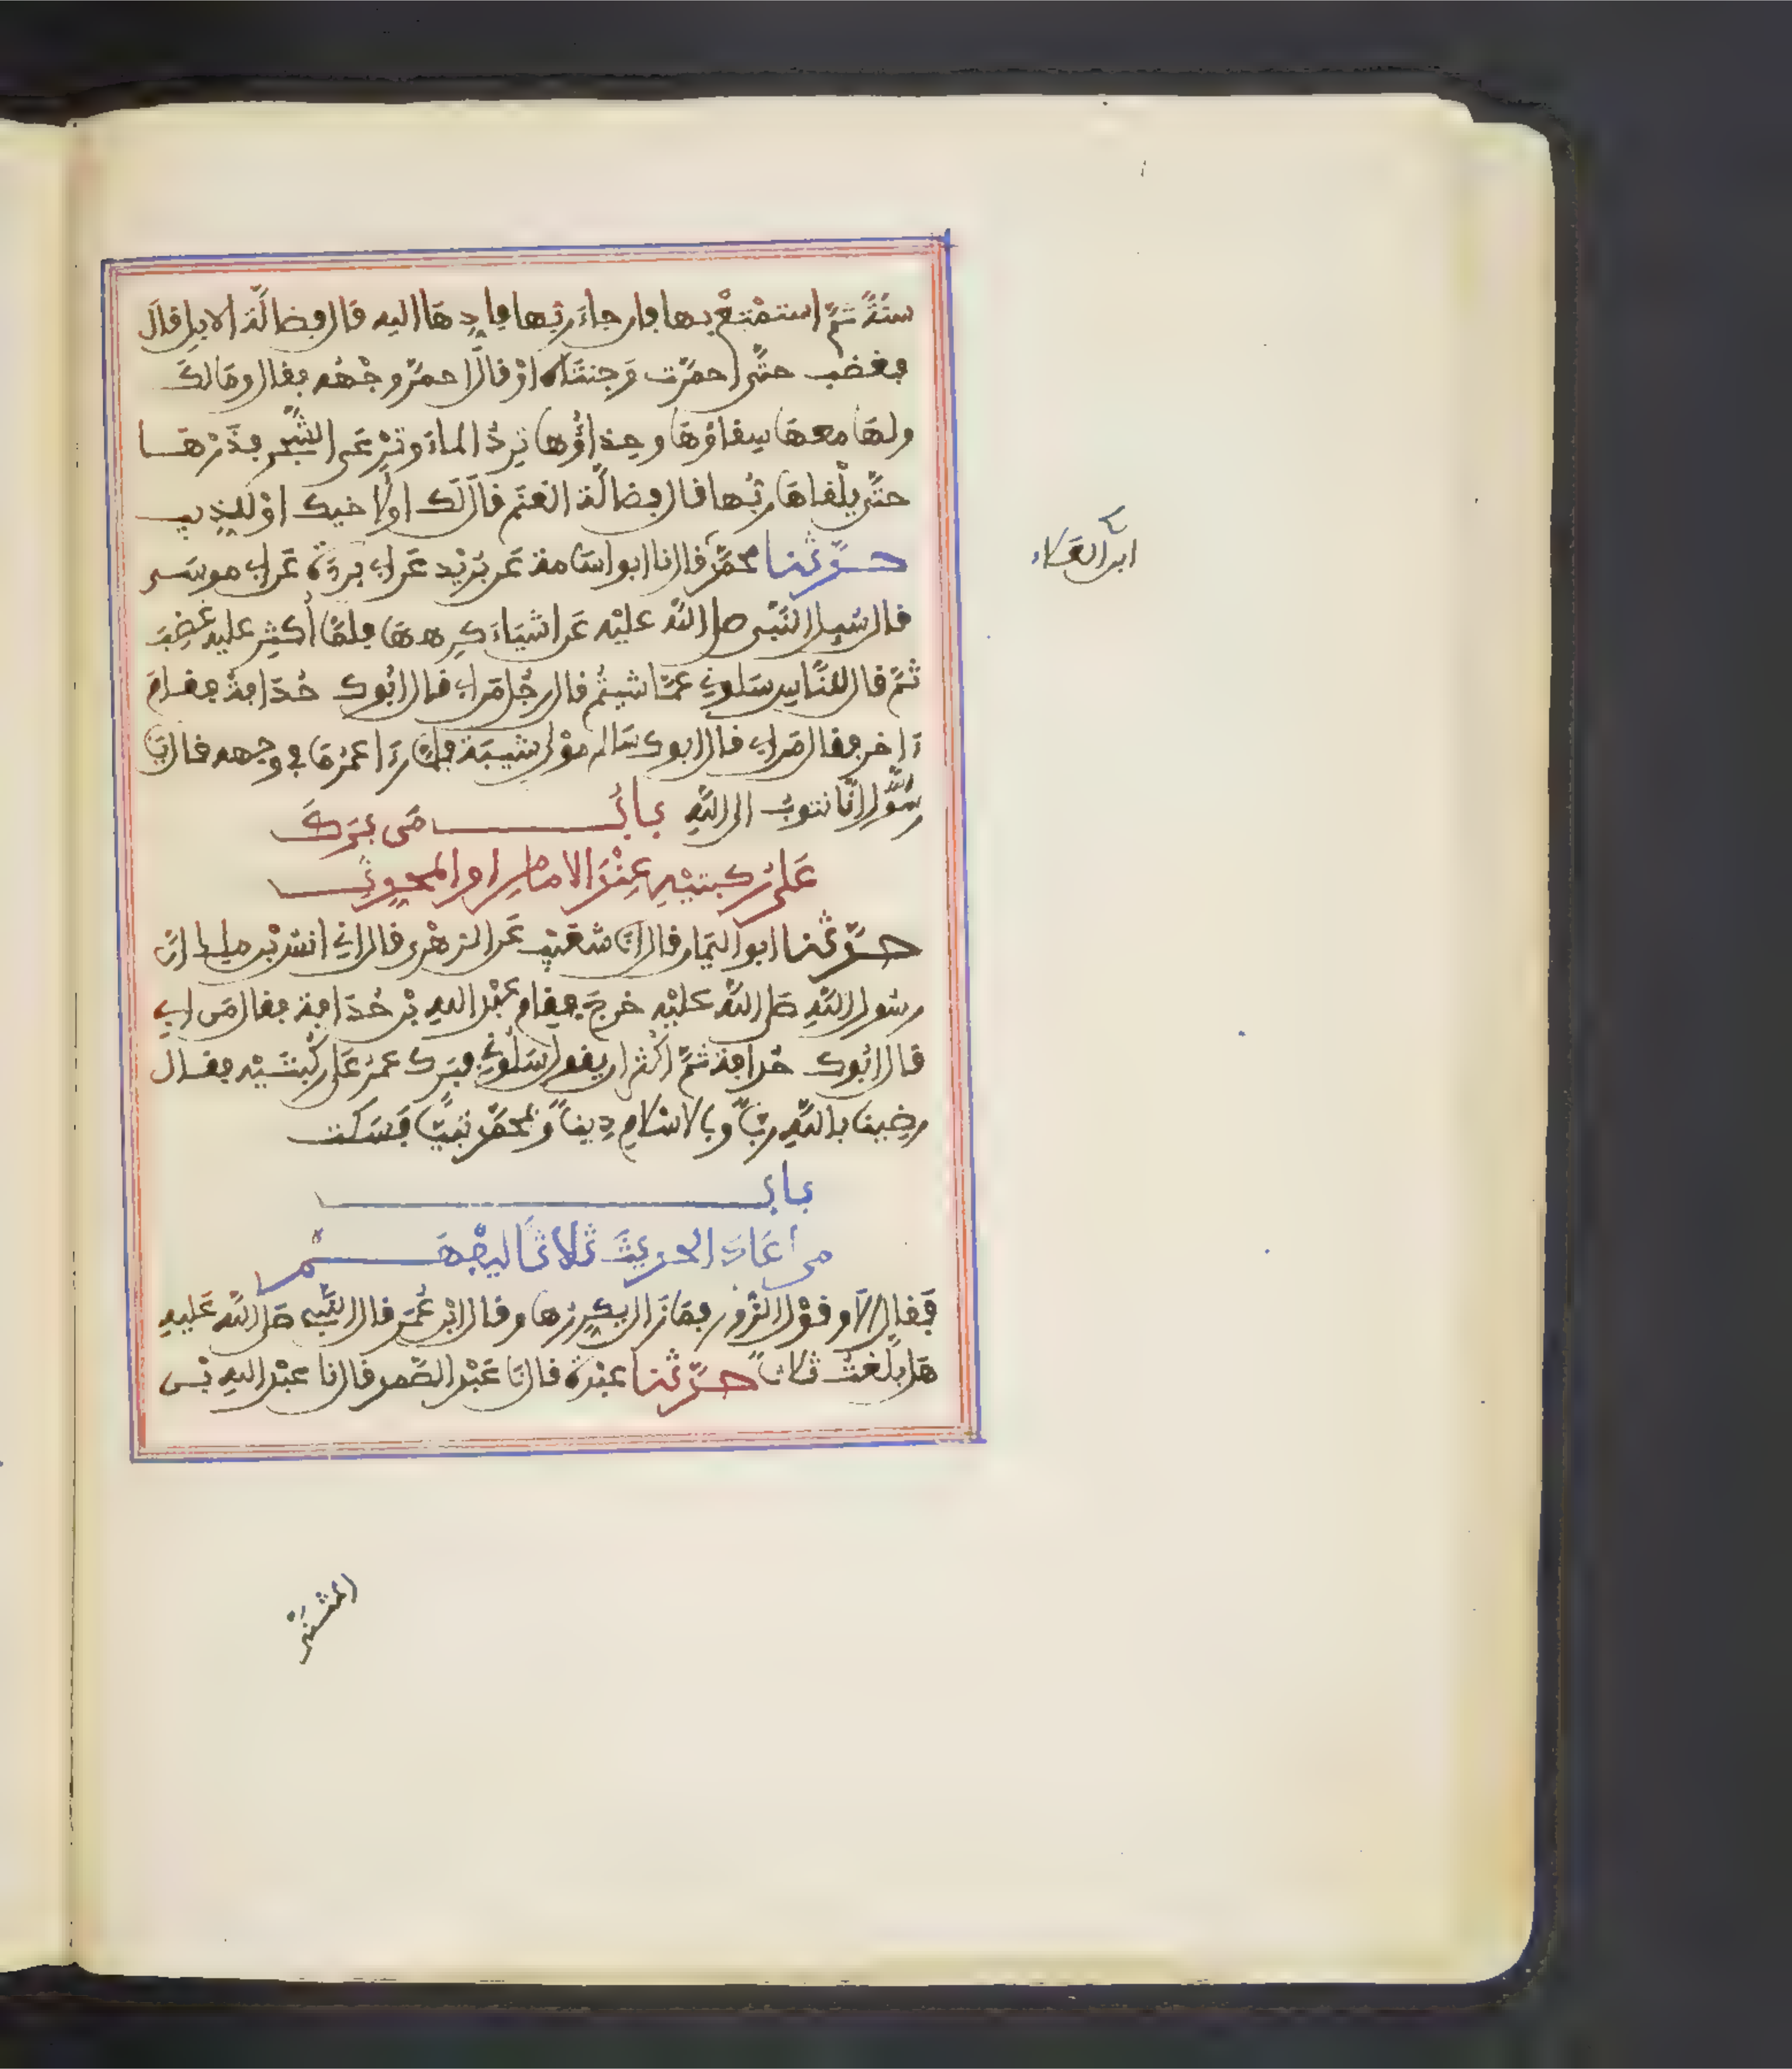 سنَةً ثمَّ استمْتِعْ بها فإن جاءَ ربُّها فادِّهَا اليه قال فضالَّة الابل قالَ
فغضب حتَّى احمرَّت وَجنتَاه اوْ قال احمرَّ وجْهُه فقال ومَا لكَ
ولهَا معهَا سِقاؤهَا وحِذاؤُها تَرِدُ الماءَ وتَرْعَى الشَّجر فذَرْهَا
حتَّى يلْقاهَا ربُّها قال فضالَّة الغنَم قال لَكَ اوْ لاخيك اوْ للذِّيب
حدَّثنا محمَّد قال نا ابو اسَامة عَن بُرَيْد عَن ابي بردَة عَن ابي موسَى
قال سُيِل النَّبي صلى اللَّه عليْه عَن اشيَاءَ كرِههَا فلمَّا أُكثِر عليه غضِبَ
ثمَّ قال للنَّاسِ سَلوني عمَّا شيتُم قال رجُل مَن ابي قال ابُوك حُذَافةُ فقامَ
ءَاخر فقال مَن ابي قال ابوك سَالم مولى شيبَة فلمَّا رَءَا عمَرُ مَا في وجهه قال يَا
رسُول اللَّه انَّا نتوبُ الى اللَّهِ بابُ مَن بَرَكَ
عَلى رُكبتيْهِ عِنْدَ الامام او المحدِّث
حدَّثنا ابو اليمَان قال انَا شعَيْب عَن الزهْري قال اني انسُ بْن ملك انَّ
رسُول اللَّهِ صَلى اللَّه عليْه خرجَ فقام عبْد الله بْن حُذَافة فقال مَن ابي
قال ابُوك حُذافة ثمَّ اكثَر ان يقول سَلُوني فبَرك عمَر عَلى رُكْبتَيْه فقال
رضِينا باللَّهِ ربّاً وبالاسْلامِ دِيناً وَبمحمَّدٍ نبيّاً فَسَكت
بابُ
من اعَادَ الحديثَ ثَلاثاً ليُفْهَم
فَقال ألاَ وقوْل الزُّور فمَا زَال يكرِّرُها وقال ابْن عُمَر قال النَّبي صَلى اللَّه عَليه
هَل بلَّغتُ ثلاثاً حدَّثنا عبْدَة قال نَا عَبْد الصَّمد قال نا عبْد الله بْن
ابن العَلاء
المثنَّى